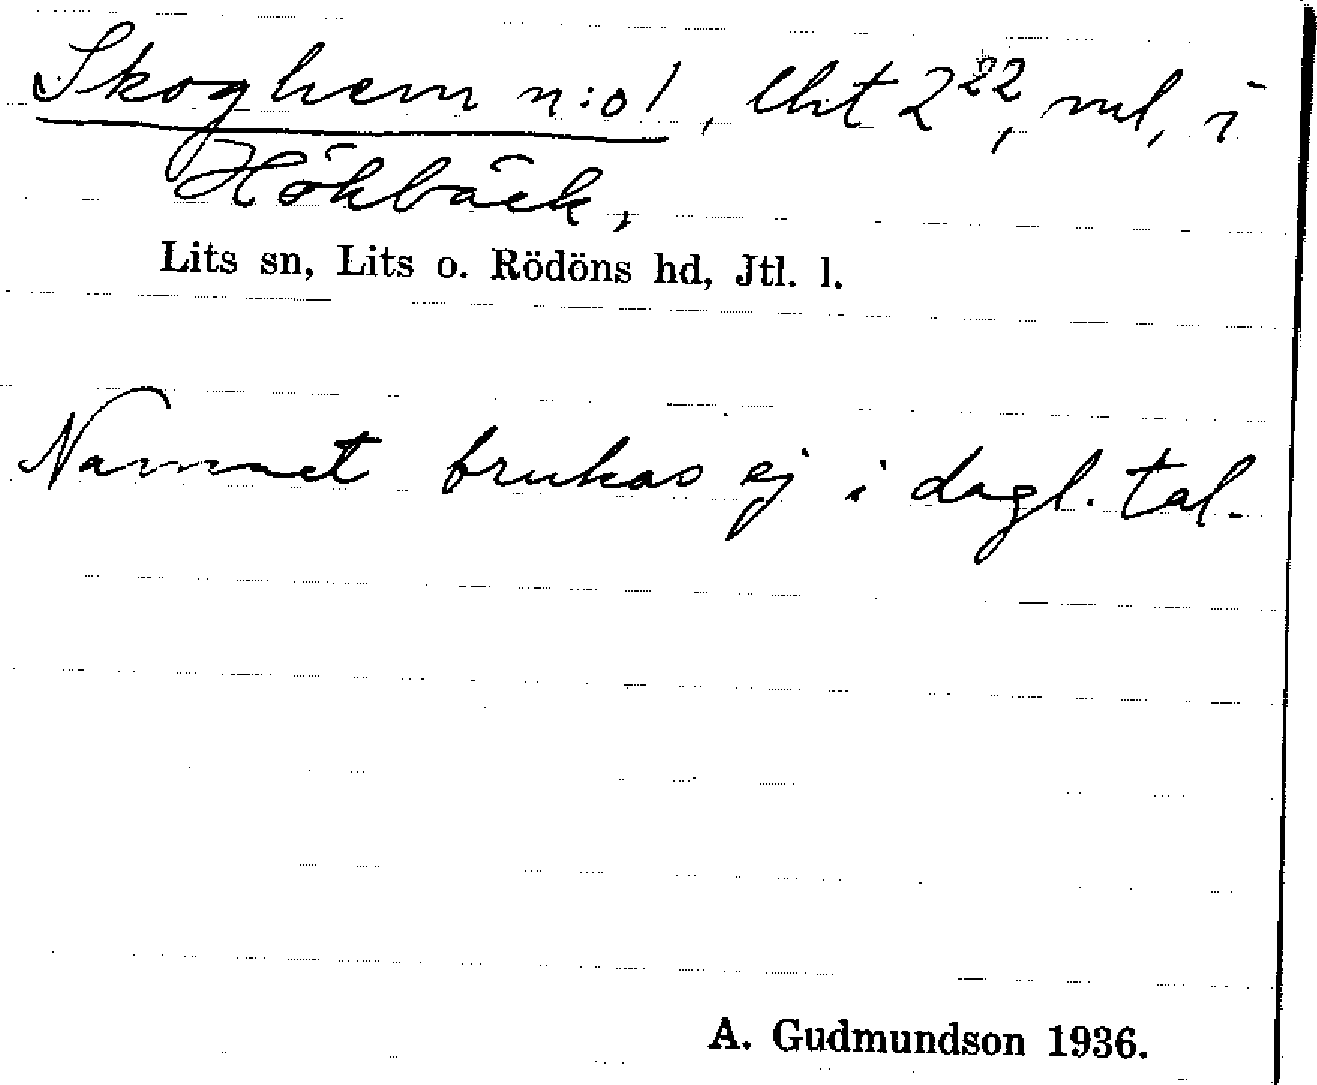 Skoghem n:o 1, lht 2²², ml, i
Hökbäck,
Lits sn, Lits o. Rödöns hd, Jtl. l.
Namnet brukas ej i dagl. tal.
A. Gudmundson 1936.